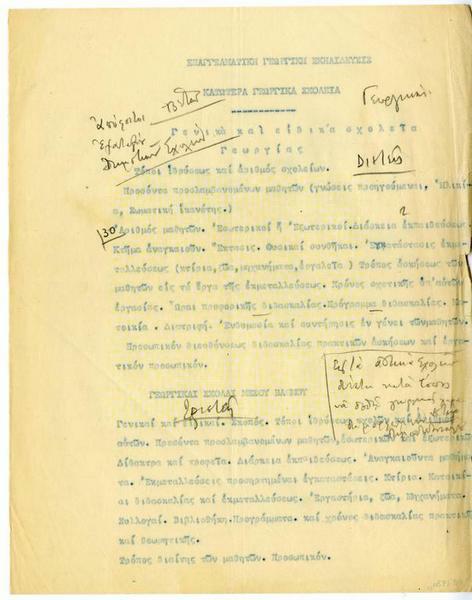 ΕΠΑΓΓΕΛΜΑΤΙΚΗ ΓΕΩΡΓΙΚΗ ΕΚΠΑΙΔΕΥΣΙΣ
ΚΑΤΩΤΕΡΑ ΓΕΩΡΓΙΚΑ ΣΧΟΛΕΙΑ
Γεωργικαί
ἀπόφοιτοι
Δημοτικῶν Σχολείων
Γενικά καί εἰδικά σχολεῖα
Γεωργίας
Διετῆς
Τόποι ἱδρύσεως καί ἀριθμός σχολείων.
Προσόντα προσλαμβανομένων μαθητῶν (γνώσεις προηγούμεναι, Ἡλικί-
α, Σωματική ἱκανότης.)
30
Ἀριθμός μαθητῶν. Ἐσωτερικοί ἤ Ἐξωτερικοί. Διάρκεια ἐκπαιδεύσεως
2
Κτῆμα ἀναγκαιοῦν. Ἔκτασις. Φυσικαί συνθῆκαι. Ἐγκατάστασις ἐκμε-
ταλλεύσεως (κτίρια, ζῶα, μηχανήματα, ἐργαλεῖα ) Τρόπος ἀσκήσεως τῶν
μαθητῶν εἰς τά ἔργα τῆς ἐκμεταλλεύσεως. Χρόνος σχετικῆς ὑπ' αὐτῶν
ἐργασίας. Ὧραι προφορικῆς διδασκαλίας. Πρόγραμμα διδασκαλίας. Κα-
τοικία. Διατροφή. Ἐνδυμασία καί συντήρησις ἐν γένει τῶν μαθητῶν.
Προσωπικόν διευθύνσεως διδασκαλίας πρακτικῶν ἀσκήσεων καί ἐργα-
τικόν προσωπικόν.
ΓΕΩΡΓΙΚΑΙ ΣΧΟΛΑΙ ΜΕΣΟΥ ΒΑΘΜΟΥ
Τριετῆς
Γενικαί καί εἰδικαί. Σκοπός. Τόποι ἱδρύσεως σχολῶν καί
αὐτῶν. Προσόντα προσλαμβανομένων μαθητῶν, ἐσωτερικῶν ἤ ἐξωτερικῶν
Δίδακτρα καί τροφεῖα. Διάρκεια ἐκπαιδεύσεως. Ἀναγκαιοῦντα μαθήμα-
τα. Ἐκμεταλλεύσεις προσηρτημέναι ἐγκαταστάσεις. Κτίρια. Κατοικί-
αι διδασκαλίας καί ἐκμεταλλεύσεως. Ἐργαστήρια, ζῶα, Μηχανήματα.
Συλλογαί. Βιβλιοθήκη. Προγράμματα. καί χρόνος διδασκαλίας πρακτικῆς
καί θεωρητικῆς.
Τρόπος διαίτης τῶν μαθητῶν. Προσωπικόν.